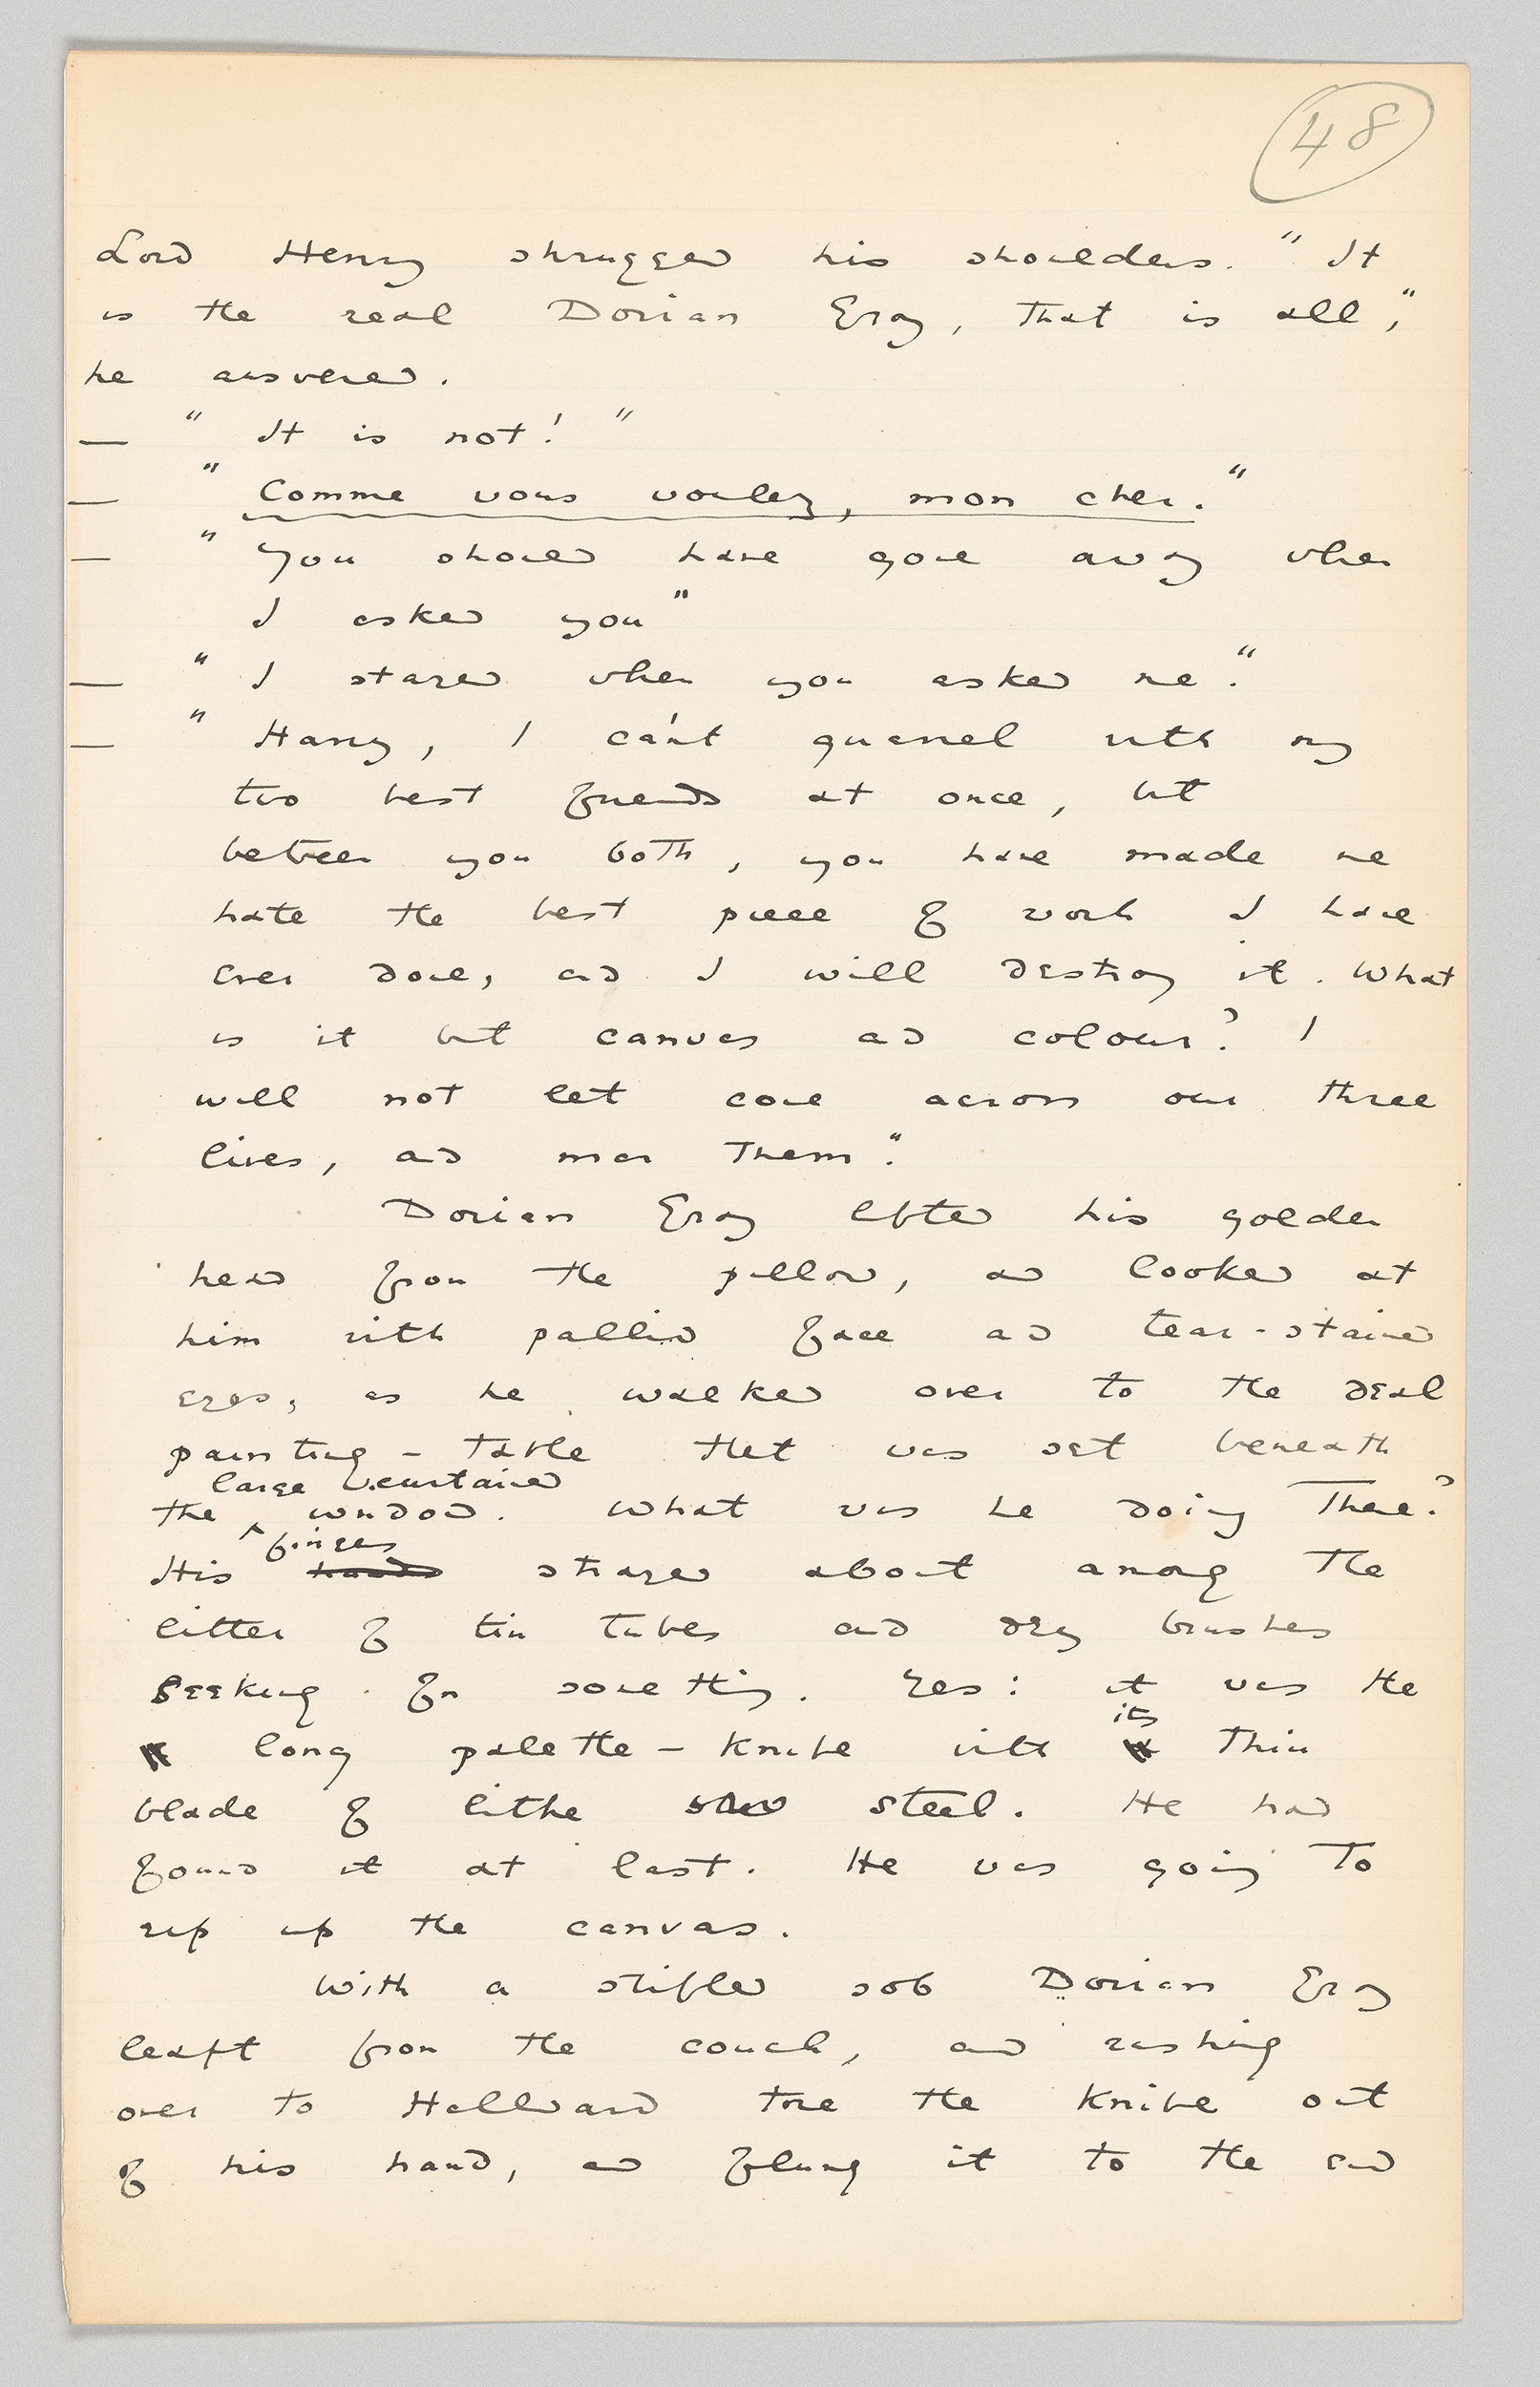 48
Lord Henry shrugged his shoulders. "It
is the real Dorian Gray, that is all,"
he answered.
— "It is not!"
— "Comme vous voulez, mon cher."
— "You should have gone away when
I asked you"
— "I stayed when you asked me."
— "Harry, I can't quarrel with my
two best friends at once, but
between you both, you have made me
hate the best piece of work I have
ever done, and I will destroy it. What
is it but canvas and colour? I
will not let come across our three
lives, and mar them."
Dorian Gray lifted his golden
head from the pillow, and looked at
him with pallid face and tear-stained
eyes, as he walked over to the deal
painting-table that was set beneath
large curtained
the ^ window. What was he doing there?
fingers
His hands strayed about among the
litter of tin tubes and dry brushes
seeking for something. Yes: it was the
its
long palette-knife with thin
blade of lithe steel. He had
found it at last. He was going to
rip up the canvas.
With a stifled sob Dorian Gray
leapt from the couch, and rushing
over to Hallward tore the knife out
of his hand, and flung it to the end